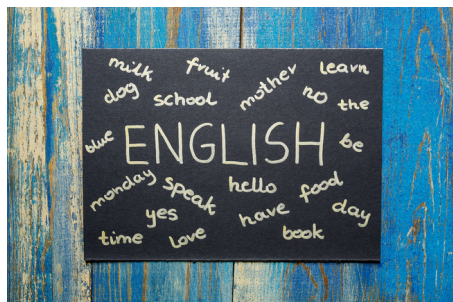 milk fruit mother learn
dog school no the
blue ENGLISH be
monday speak hello food
yes have day
time love book